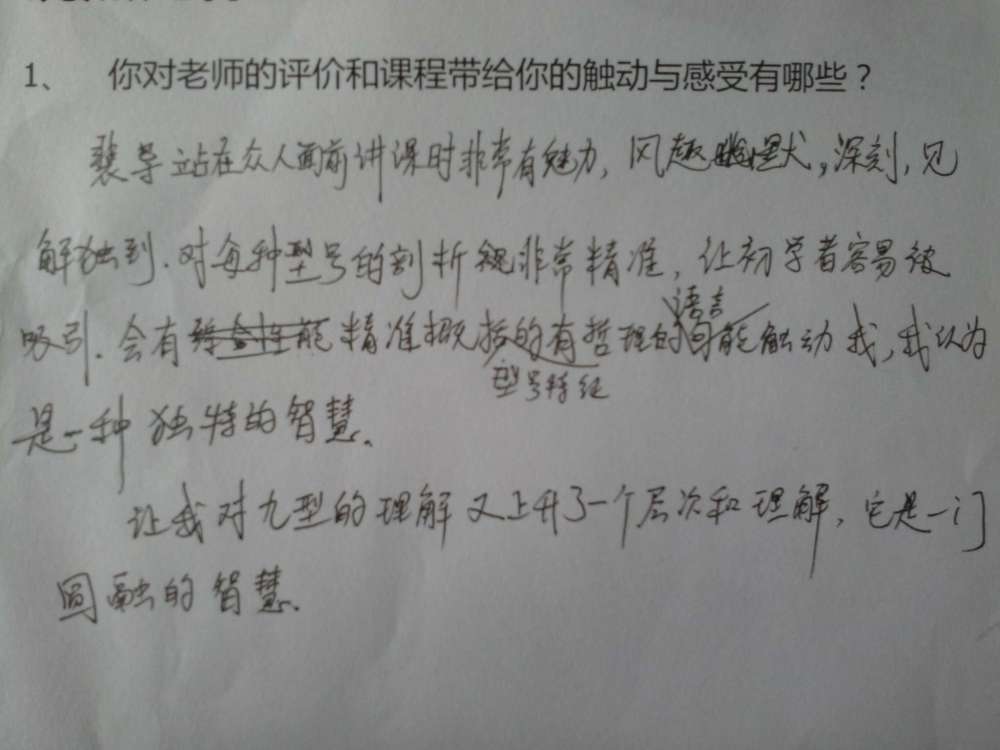 1、 你对老师的评价和课程带给你的触动与感受有哪些？
裴导站在众人面前讲课时非常有魅力，风趣幽默，深刻，见
解独到．对每种型号的剖析都非常精准，让初学者容易被
语言
吸引．会有精准概括的有哲理的句能触动我，我认为
型号特征
是一种独特的智慧．
让我对九型的理解又上升了一个层次和理解，它是一门
圆融的智慧．